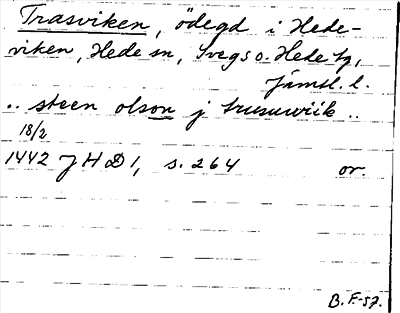 Trasviken, ödegd i Hede-
viken, Hede sn, Svegs o. Hede tg,
Jämtl. l.
.. steen olson j trusuwiik ..
18/2
1442 JHD 1, s. 264 or.
B. F. -57.